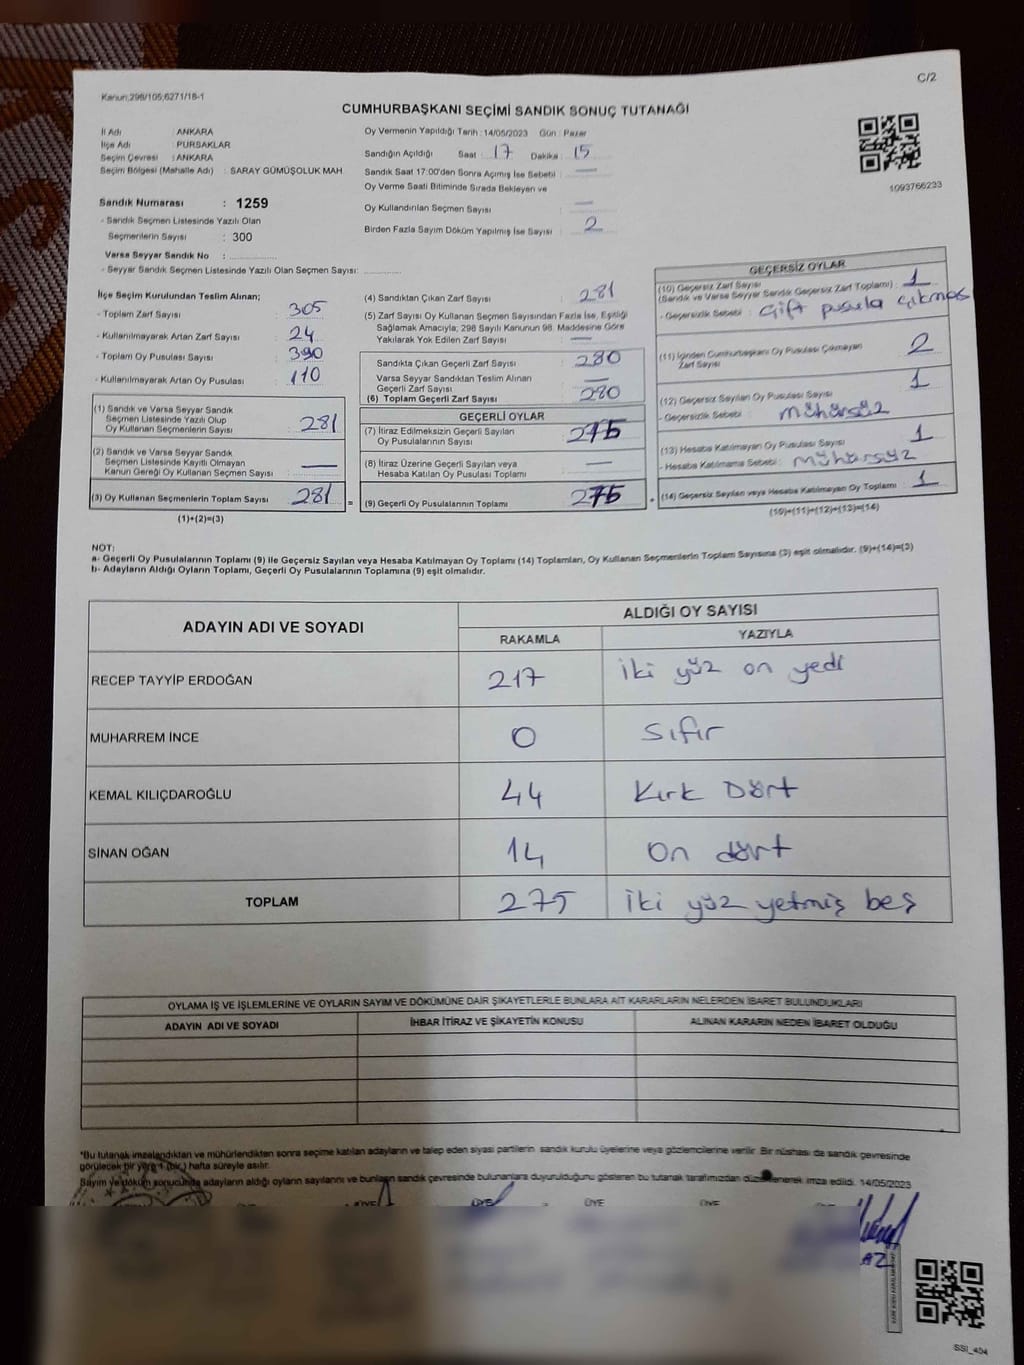 C/2
Kanun:298/105;6271/18-1
CUMHURBAŞKANI SEÇİMİ SANDIK SONUÇ TUTANAĞI
İl Adı : ANKARA
İlçe Adı : PURSAKLAR
Seçim Çevresi : ANKARA
Seçim Bölgesi (Mahalle Adı) : SARAY GÜMÜŞOLUK MAH
Sandık Numarası : 1259
- Sandık Seçmen Listesinde Yazılı Olan
Seçmenlerin Sayısı : 300
Varsa Seyyar Sandık No :
- Seyyar Sandık Seçmen Listesinde Yazılı Olan Seçmen Sayısı:
Oy Vermenin Yapıldığı Tarih : 14/05/2023 Gün : Pazar
Sandığın Açıldığı Saat : 17 Dakika : 15
Sandık Saat 17:00'den Sonra Açımış İse Sebebi : —
Oy Verme Saati Bitiminde Sırada Bekleyen ve
Oy Kullandırılan Seçmen Sayısı : —
Birden Fazla Sayım Döküm Yapılmış İse Sayısı : 2
1093766233
İlçe Seçim Kurulundan Teslim Alınan;
- Toplam Zarf Sayısı : 305
- Kullanılmayarak Artan Zarf Sayısı : 24
- Toplam Oy Pusulası Sayısı : 390
- Kullanılmayarak Artan Oy Pusulası : 110
(1) Sandık ve Varsa Seyyar Sandık
Seçmen Listesinde Yazılı Olup
Oy Kullanan Seçmenlerin Sayısı : 281
(2) Sandık ve Varsa Seyyar Sandık
Seçmen Listesinde Kayıtlı Olmayan
Kanun Gereği Oy Kullanan Seçmen Sayısı : —
(3) Oy Kullanan Seçmenlerin Toplam Sayısı : 281 =
(1)+(2)=(3)
(4) Sandıktan Çıkan Zarf Sayısı : 281
(5) Zarf Sayısı Oy Kullanan Seçmen Sayısından Fazla İse, Eşitliği
Sağlamak Amacıyla; 298 Sayılı Kanunun 98. Maddesine Göre
Yakılarak Yok Edilen Zarf Sayısı : —
Sandıkta Çıkan Geçerli Zarf Sayısı : 280
Varsa Seyyar Sandıktan Teslim Alınan
Geçerli Zarf Sayısı : —
(6) Toplam Geçerli Zarf Sayısı : 280
GEÇERLİ OYLAR
(7) İtiraz Edilmeksizin Geçerli Sayılan
Oy Pusulalarının Sayısı :
(8) İtiraz Üzerine Geçerli Sayılan veya
Hesaba Katılan Oy Pusulası Toplamı : —
(9) Geçerli Oy Pusulalarının Toplamı : +
GEÇERSİZ OYLAR
(10) Geçersiz Zarf Sayısı : 1
(Sandık ve Varsa Seyyar Sandık Geçersiz Zarf Toplamı)
- Geçersizlik Sebebi : Çift pusula çıkması
(11) İçinden Cumhurbaşkanı Oy Pusulası Çıkmayan
Zarf Sayısı : 2
(12) Geçersiz Sayılan Oy Pusulası Sayısı : 1
- Geçersizlik Sebebi : mühürsüz
(13) Hesaba Katılmayan Oy Pusulası Sayısı : 1
- Hesaba Katılmama Sebebi : mühürsüz
(14) Geçersiz Sayılan veya Hesaba Katılmayan Oy Toplamı : 1
(10)+(11)+(12)+(13)=(14)
NOT:
a- Geçerli Oy Pusulalarının Toplamı (9) ile Geçersiz Sayılan veya Hesaba Katılmayan Oy Toplamı (14) Toplamları, Oy Kullanan Seçmenlerin Toplam Sayısına (3) eşit olmalıdır. (9)+(14)=(3)
b- Adayların Aldığı Oyların Toplamı, Geçerli Oy Pusulalarının Toplamına (9) eşit olmalıdır.
ADAYIN ADI VE SOYADI ALDIĞI OY SAYISI
RAKAMLA YAZIYLA
RECEP TAYYİP ERDOĞAN 217 iki yüz on yedi
MUHARREM İNCE 0 Sıfır
KEMAL KILIÇDAROĞLU 44 Kırk Dört
SİNAN OĞAN 14 On dört
TOPLAM 275 iki yüz yetmiş beş
OYLAMA İŞ VE İŞLEMLERİNE VE OYLARIN SAYIM VE DÖKÜMÜNE DAİR ŞİKAYETLERLE BUNLARA AİT KARARLARIN NELERDEN İBARET BULUNDUKLARI
ADAYIN ADI VE SOYADI İHBAR İTİRAZ VE ŞİKAYETİN KONUSU ALINAN KARARIN NEDEN İBARET OLDUĞU
*Bu tutanak imzalandıktan ve mühürlendikten sonra seçime katılan adayların ve talep eden siyasi partilerin sandık kurulu üyelerine veya gözlemcilerine verilir. Bir nüshası da sandık çevresinde
görülecek bir yere 1 (bir) hafta süreyle asılır.
Sayım ve döküm sonucunda adayların aldığı oyların sayılarını ve bunların sandık çevresinde bulunanlara duyurulduğunu gösteren bu tutanak tarafımızdan düzenlenerek imza edildi. 14/05/2023
ÜYE ÜYE ÜYE ÜYE
AZ
SSI_404